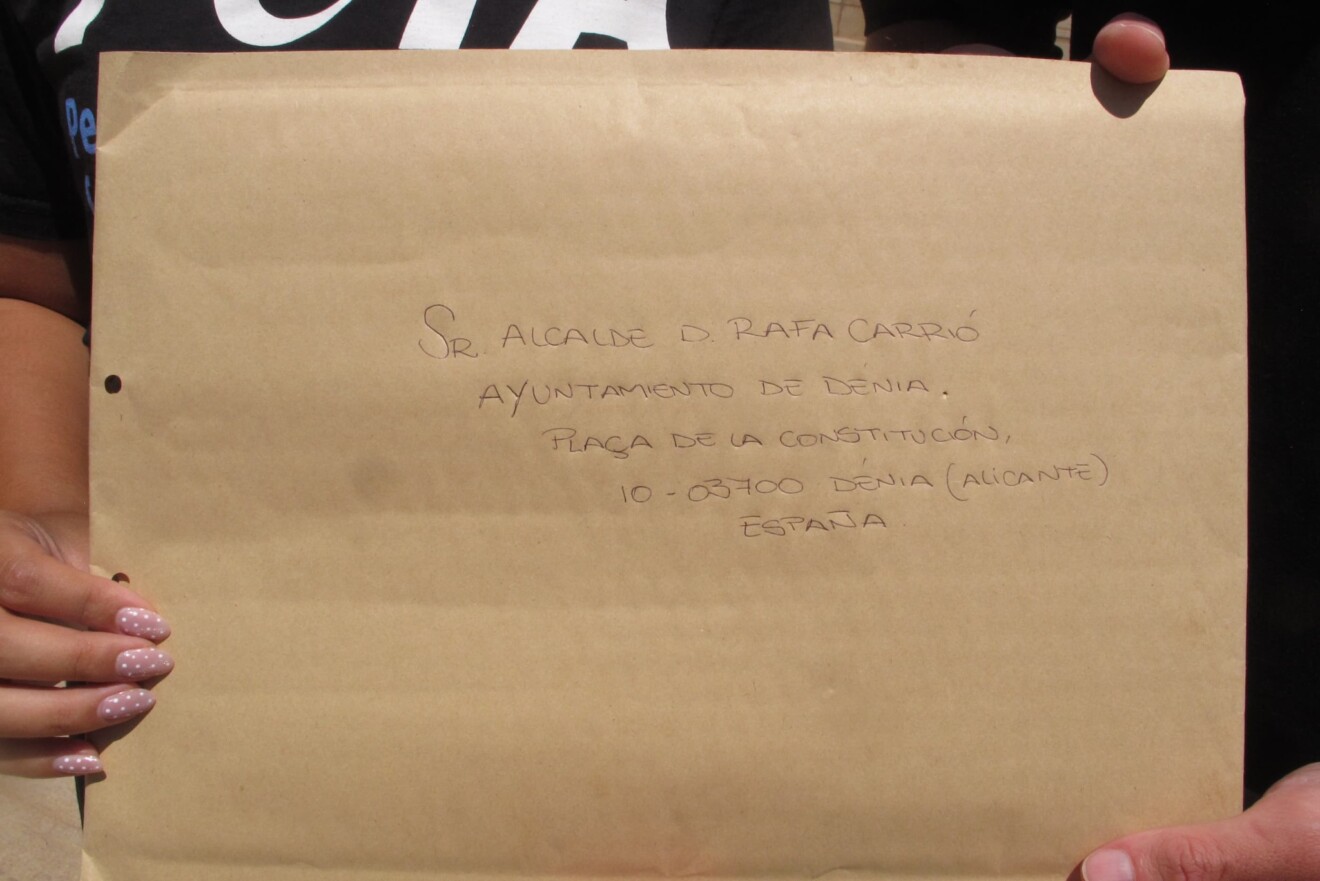 PETA
Pe
Sr. ALCALDE D. RAFA CARRIÓ
AYUNTAMIENTO DE DÉNIA.
PLAÇA DE LA CONSTITUCIÓN,
10 - 03700 DÉNIA (ALICANTE)
ESPAÑA